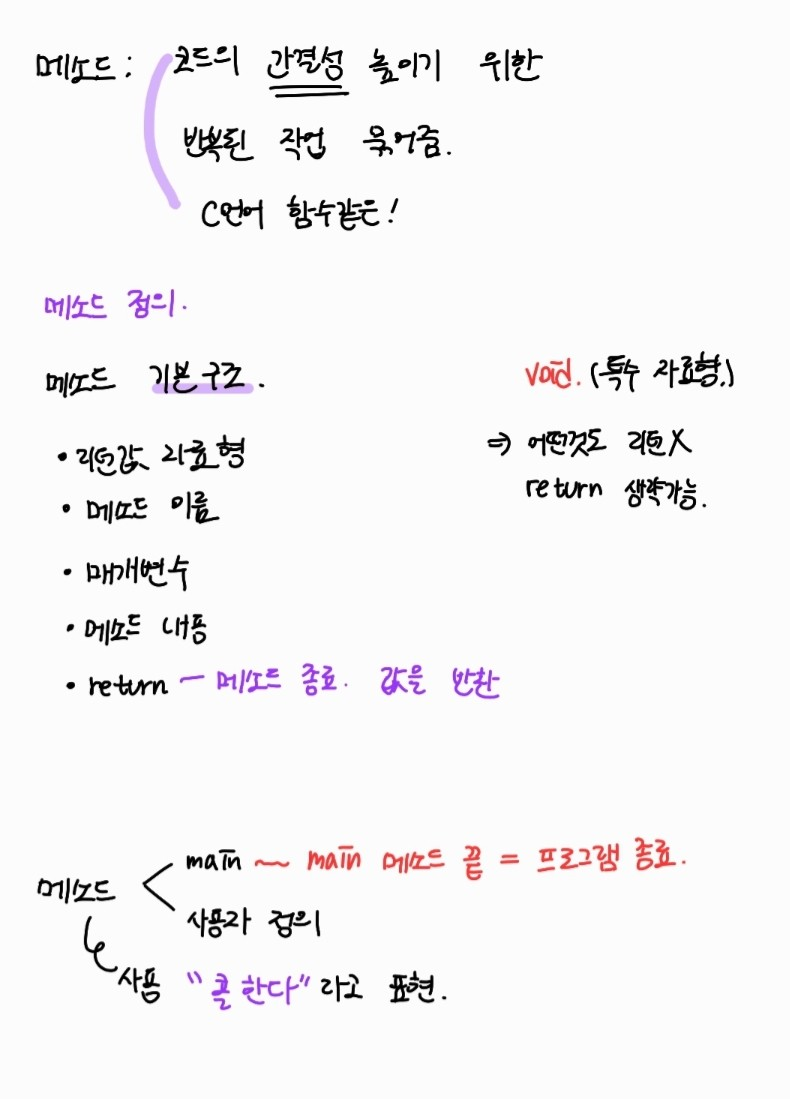 메소드 : 코드의 간결성 높이기 위한
반복된 작업 묶어줌.
C언어 함수같은!
메소드 정의.
메소드 기본구조.
• 리턴값 자료형
• 메소드 이름
• 매개변수
• 메소드 내용
• return - 메소드 종료. 값을 반환
void. (특수 자료형.)
⇒ 어떤것도 리턴X
return 생략가능.
메소드 < main ~ main 메소드 끝 = 프로그램 종료.
사용자 정의
사용 "콜 한다" 라고 표현.